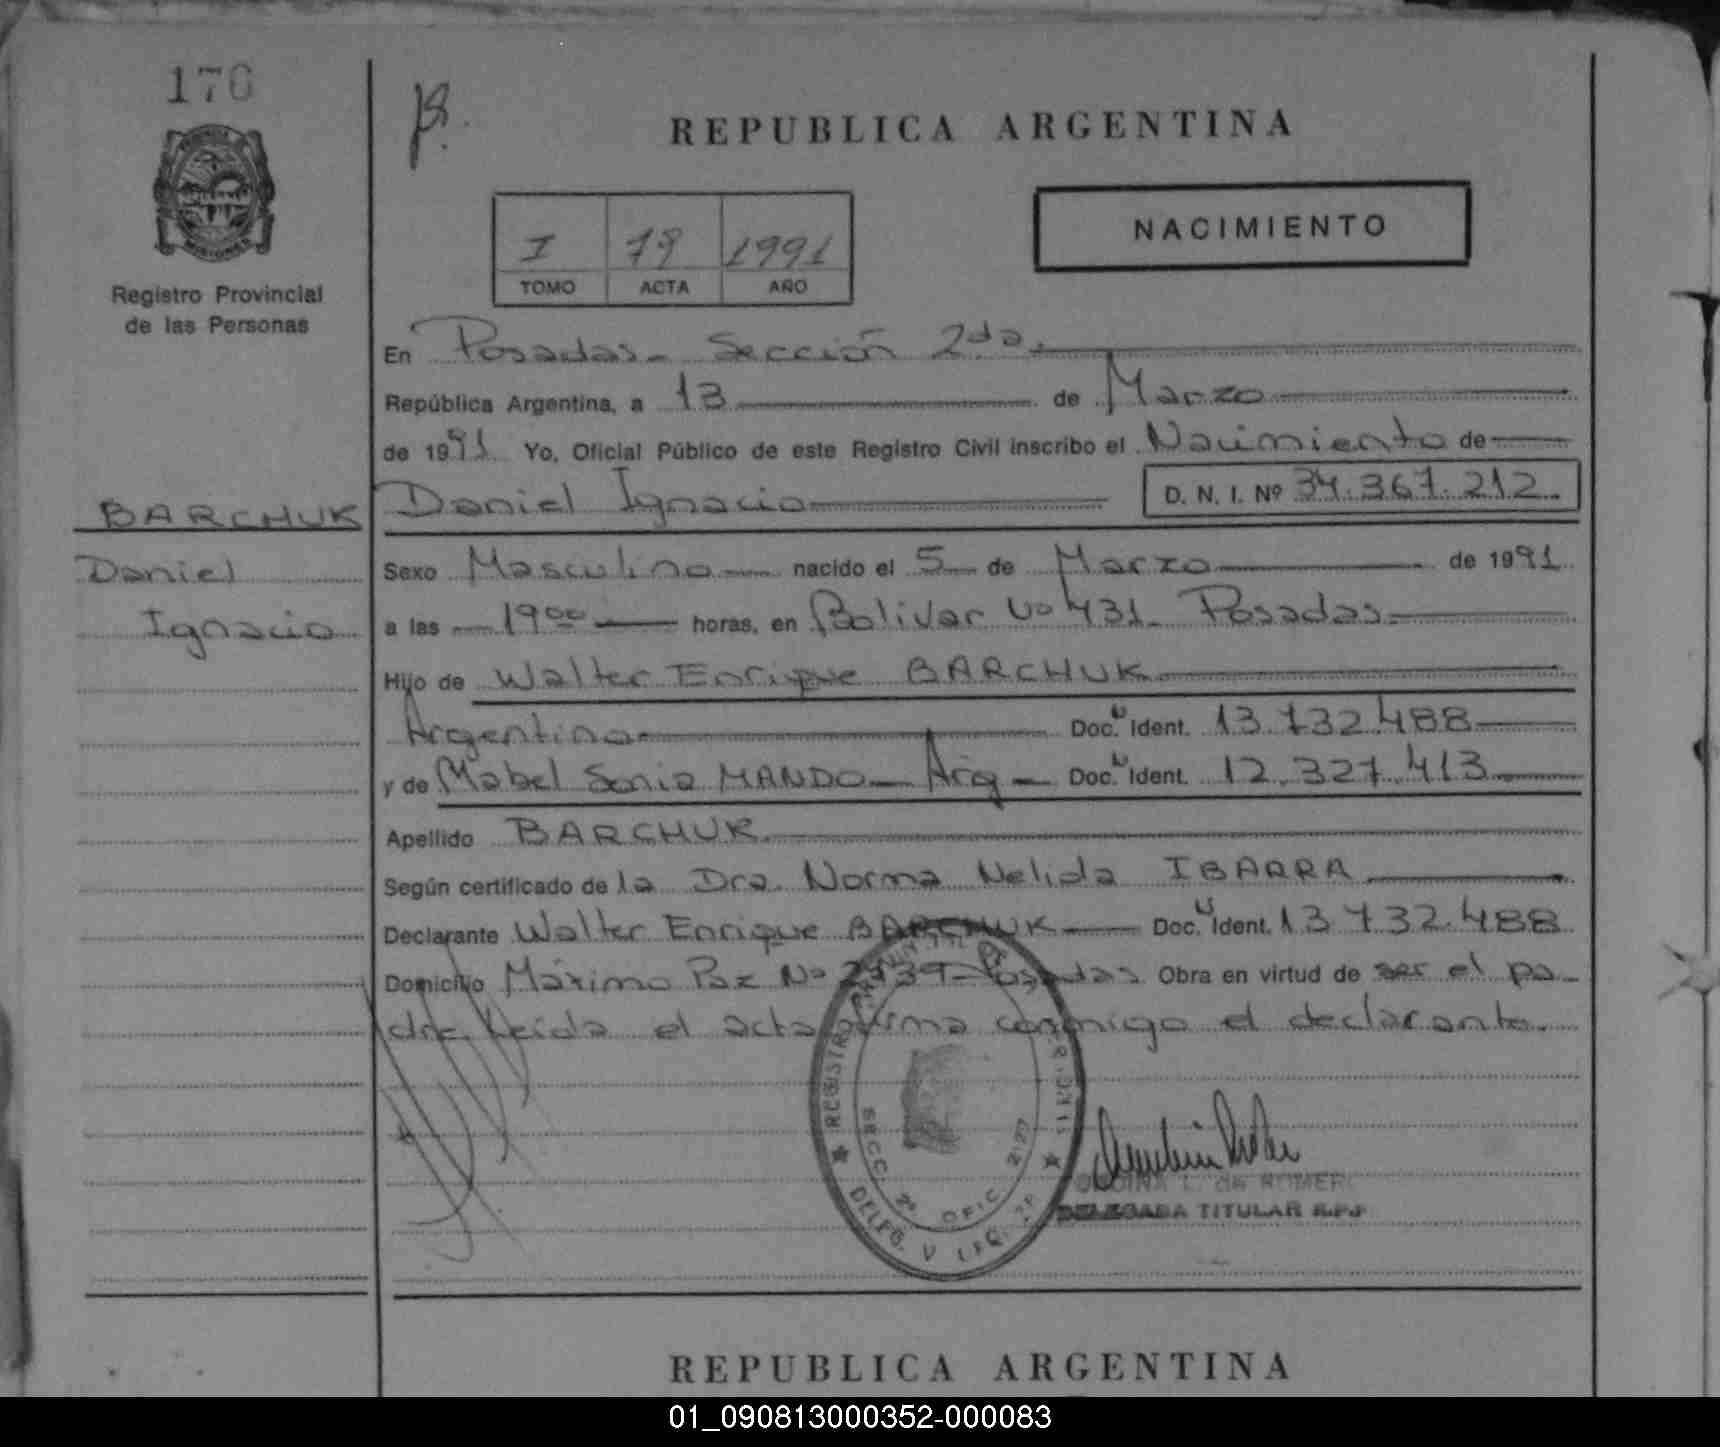 176
REPUBLICA ARGENTINA
NACIMIENTO
I 79 1991
TOMO ACTA AÑO
Registro Provincial
de las Personas
En Posadas - Sección 2da.
República Argentina, a 13 de Marzo
de 1991 Yo, Oficial Público de este Registro Civil inscribo el Nacimiento de
BARCHUK Daniel Ignacio D. N. I. Nº 34.367.212.
Daniel
Ignacio
Sexo Masculino nacido el 5 de Marzo de 1991
a las 19 00 horas, en Bolivar Nº 431 - Posadas.
Hijo de Walter Enrique BARCHUK
Argentino Doc. U Ident. 13.732.488
y de Mabel Sonia MANDO - Arg - Doc. U Ident. 12.327.413
Apellido BARCHUK.
Según certificado de la Dra. Norma Nelida IBARRA
Declarante Walter Enrique BARCHUK Doc. U Ident. 13.732.488
Domicilio Máximo Paz Nº 2939 - Posadas. Obra en virtud de ser el pa-
dre. Leída el acta firma conmigo el declarante.
SECC. 2º OFIC.
DELEG.
L. de ROMERO
DELEGADA TITULAR R.P.P
REPUBLICA ARGENTINA
01_090813000352-000083